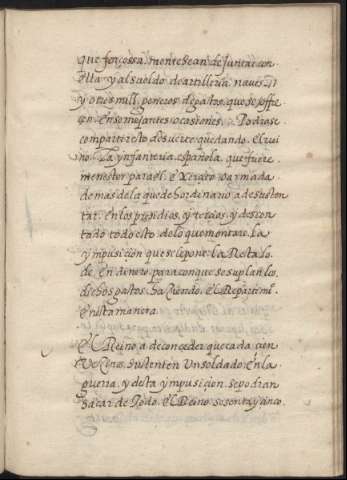 que forçossamente sean de Juntar con
ella y al sueldo de artilleria naues
y otros mill generos de gastos que se offre
çen En semejantes ocasiones. Podrase
compartir esto de suerte que dando. El rei
no. La ynfanteria española que fuere
menester para el exercito o armada
demas de la que de hordinario a de susten
tar. en los pressidios, y tercios, y descon
tado todo esto de lo que montare. La
ymposicion que se le pone. La Resta lo
de En dinero para con que se suplan los
dichos gastos haziendo. El Repartimi.º
En esta manera.
El Reino a de conceder que cada cien
Vezinos sustenten Un soldado En la
guerra y desta ymposicion se podran
sacar de Todo. El Reino sesenta y cinco